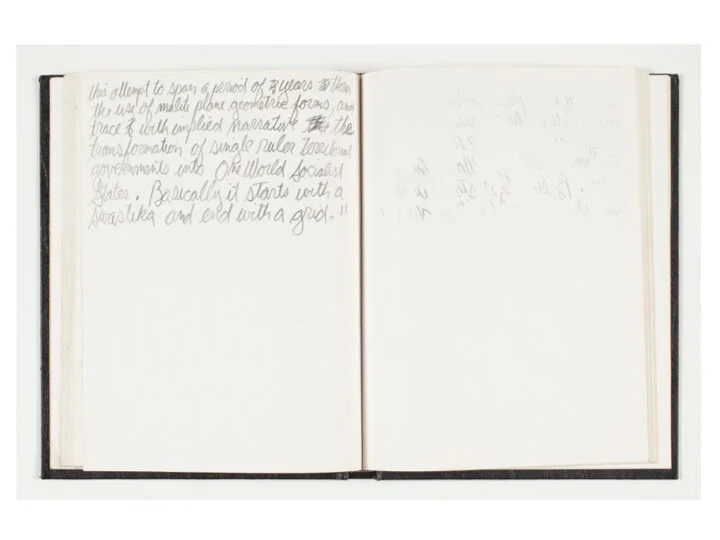 this attempt to span a period of years thru
the use of plane geometric forms, and
trace it with implied narrative the
transformation of single ruler territorial
governments into One World Socialist
States. Basically it starts with a
swastika and end with a grid."